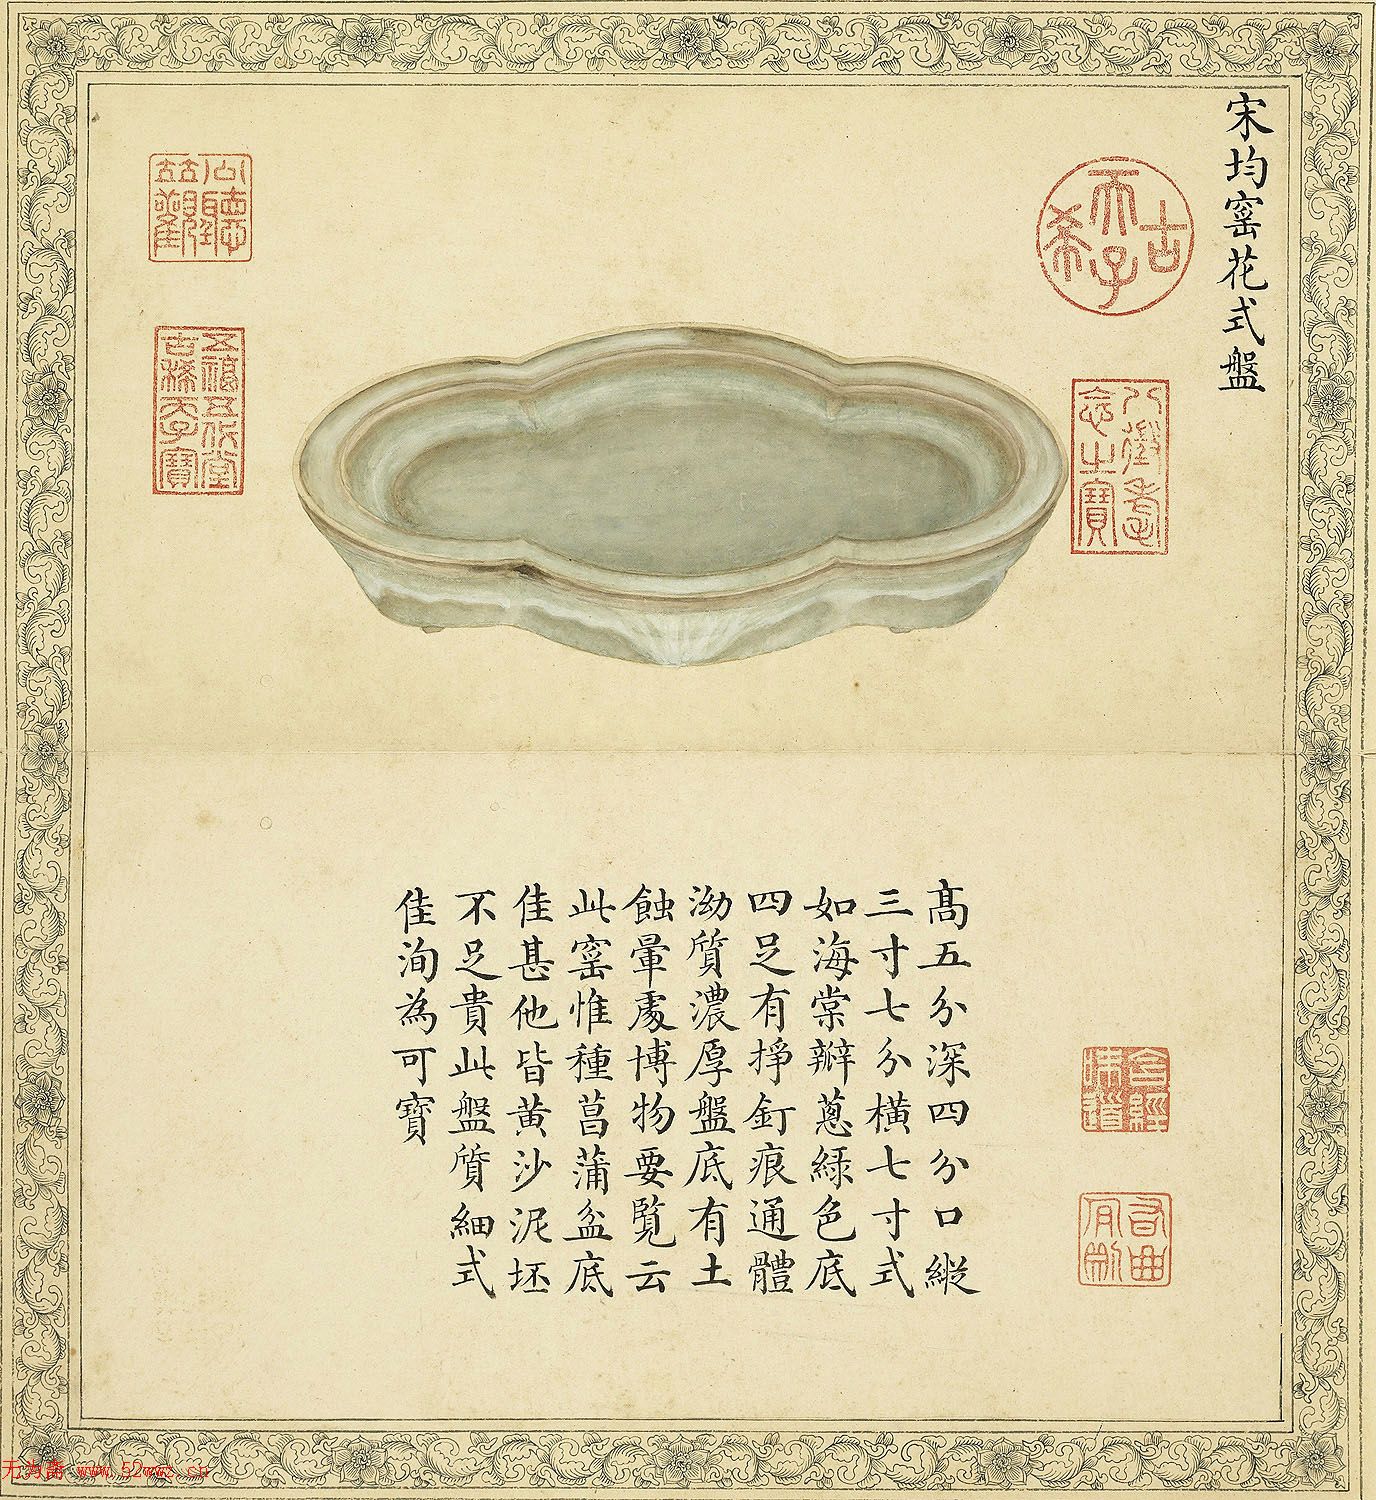 宋均窰花式盤
古
希
天
子
八徵耄
念之寶
公聽
竝觀
五福五代堂
古稀天子寶
高五分深四分口縱
三寸七分橫七寸式
如海棠瓣蔥綠色底
四足有掙釘痕通體
泑質濃厚盤底有土
蝕暈處博物要覽云
此窰惟種菖蒲盆底
佳甚他皆黄沙泥坯
不足貴此盤質細式
佳洵為可寶
含經
味道
无为斋 www.52wwz.cn